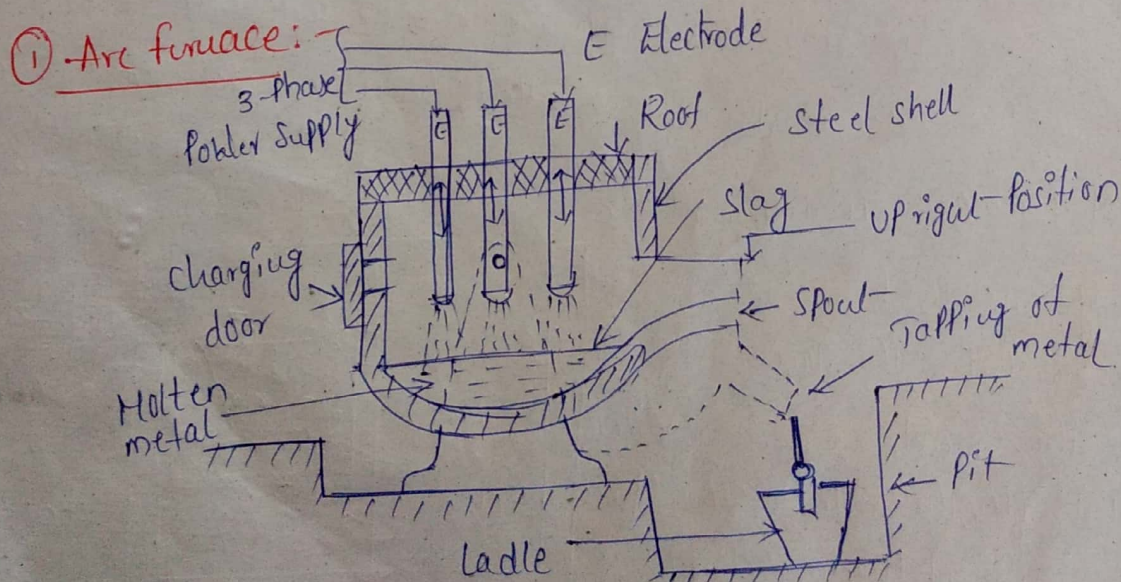 ① Arc furnace:-
E Electrode
3-Phase
Power Supply
E
E
E
Roof
Steel shell
Slag
Upright-Position
Charging
door
Spout
Tapping of
metal
Molten
metal
Pit
Ladle